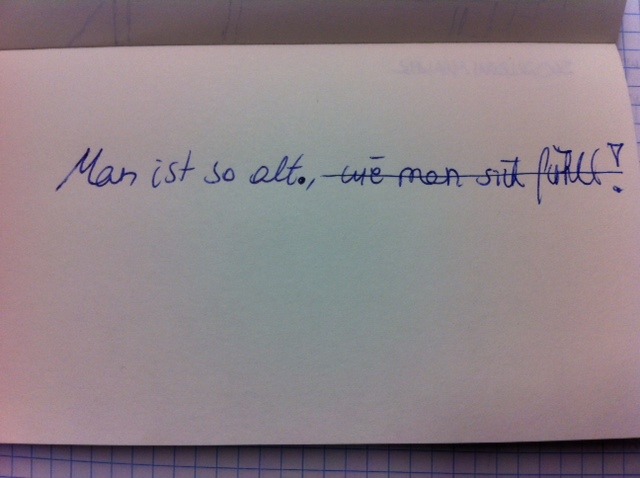 Man ist so alt., wie man sich fühlt!